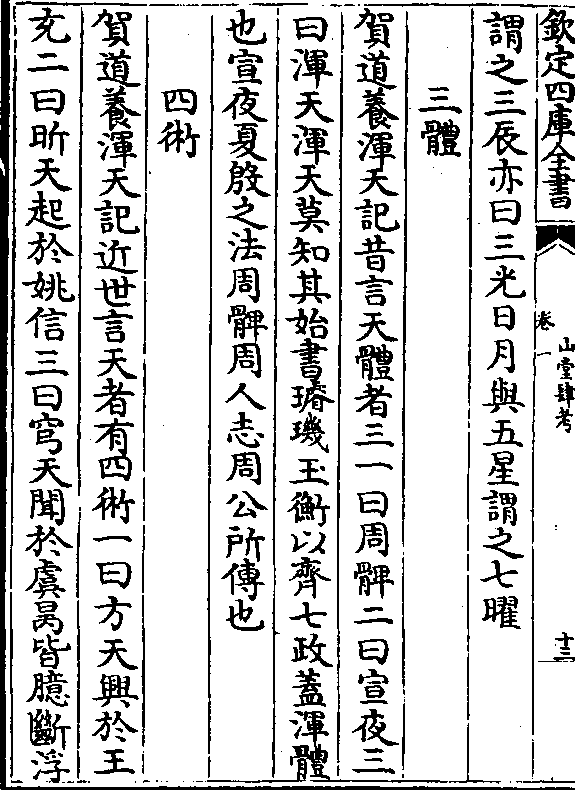 欽定四庫全書
卷一
山堂肆考
十三
謂之三辰亦曰三光日月與五星謂之七曜
三體
賀道養渾天記昔言天體者三一曰周髀二曰宣夜三
曰渾天渾天莫知其始書璿璣玉衡以齊七政蓋渾體
也宣夜夏殷之法周髀周人志周公所傳也
四術
賀道養渾天記近世言天者有四術一曰方天興於王
充二曰昕天起於姚信三曰穹天聞於虞昺皆臆斷浮